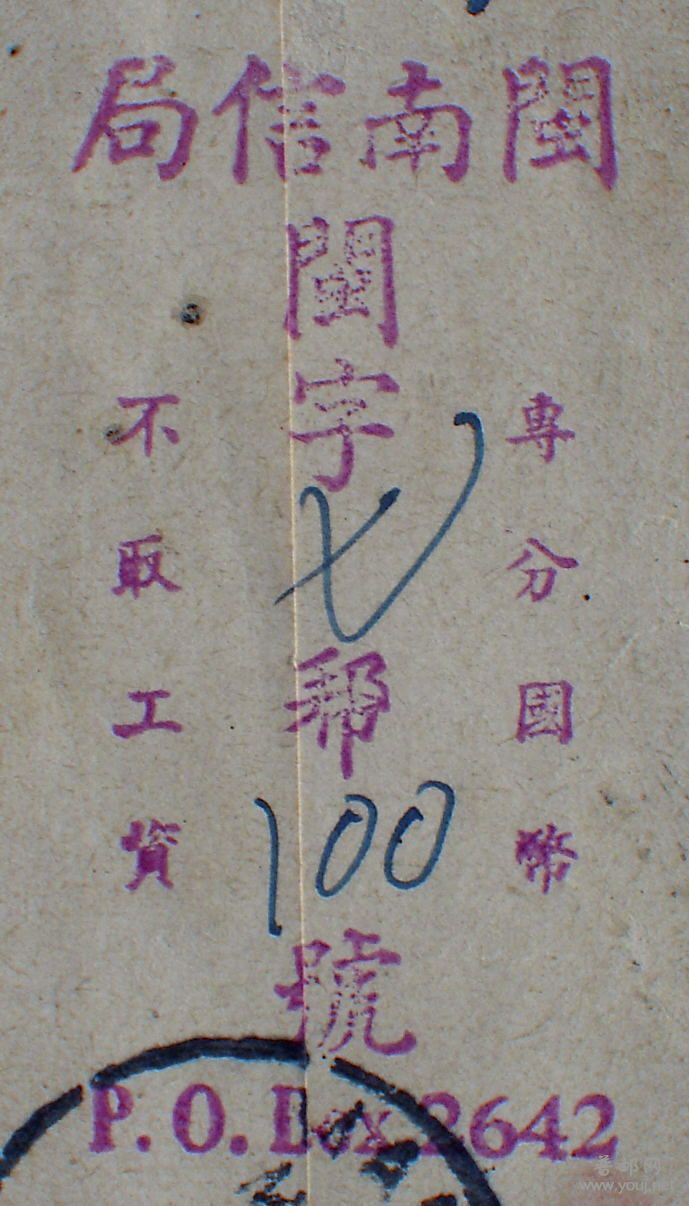 閩南信局
專分國幣
閩字七郵100號
不取工資
P.O. Box 2642
www.youj.net